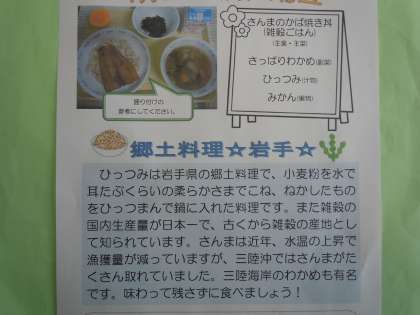 盛り付けの
参考にしてください。
さんまのかば焼き丼
(雑穀ごはん)
(主食・主菜)
さっぱりわかめ(副菜)
ひっつみ(汁物)
みかん(果物)
郷土料理☆岩手☆
ひっつみは岩手県の郷土料理で、小麦粉を水で
耳たぶくらいの柔らかさまでこね、ねかしたもの
をひっつまんで鍋に入れた料理です。また雑穀の
国内生産量が日本一で、古くから雑穀の産地とし
て知られています。さんまは近年、水温の上昇で
漁獲量が減っていますが、三陸沖ではさんまがた
くさん取れていました。三陸海岸のわかめも有名
です。味わって残さずに食べましょう！